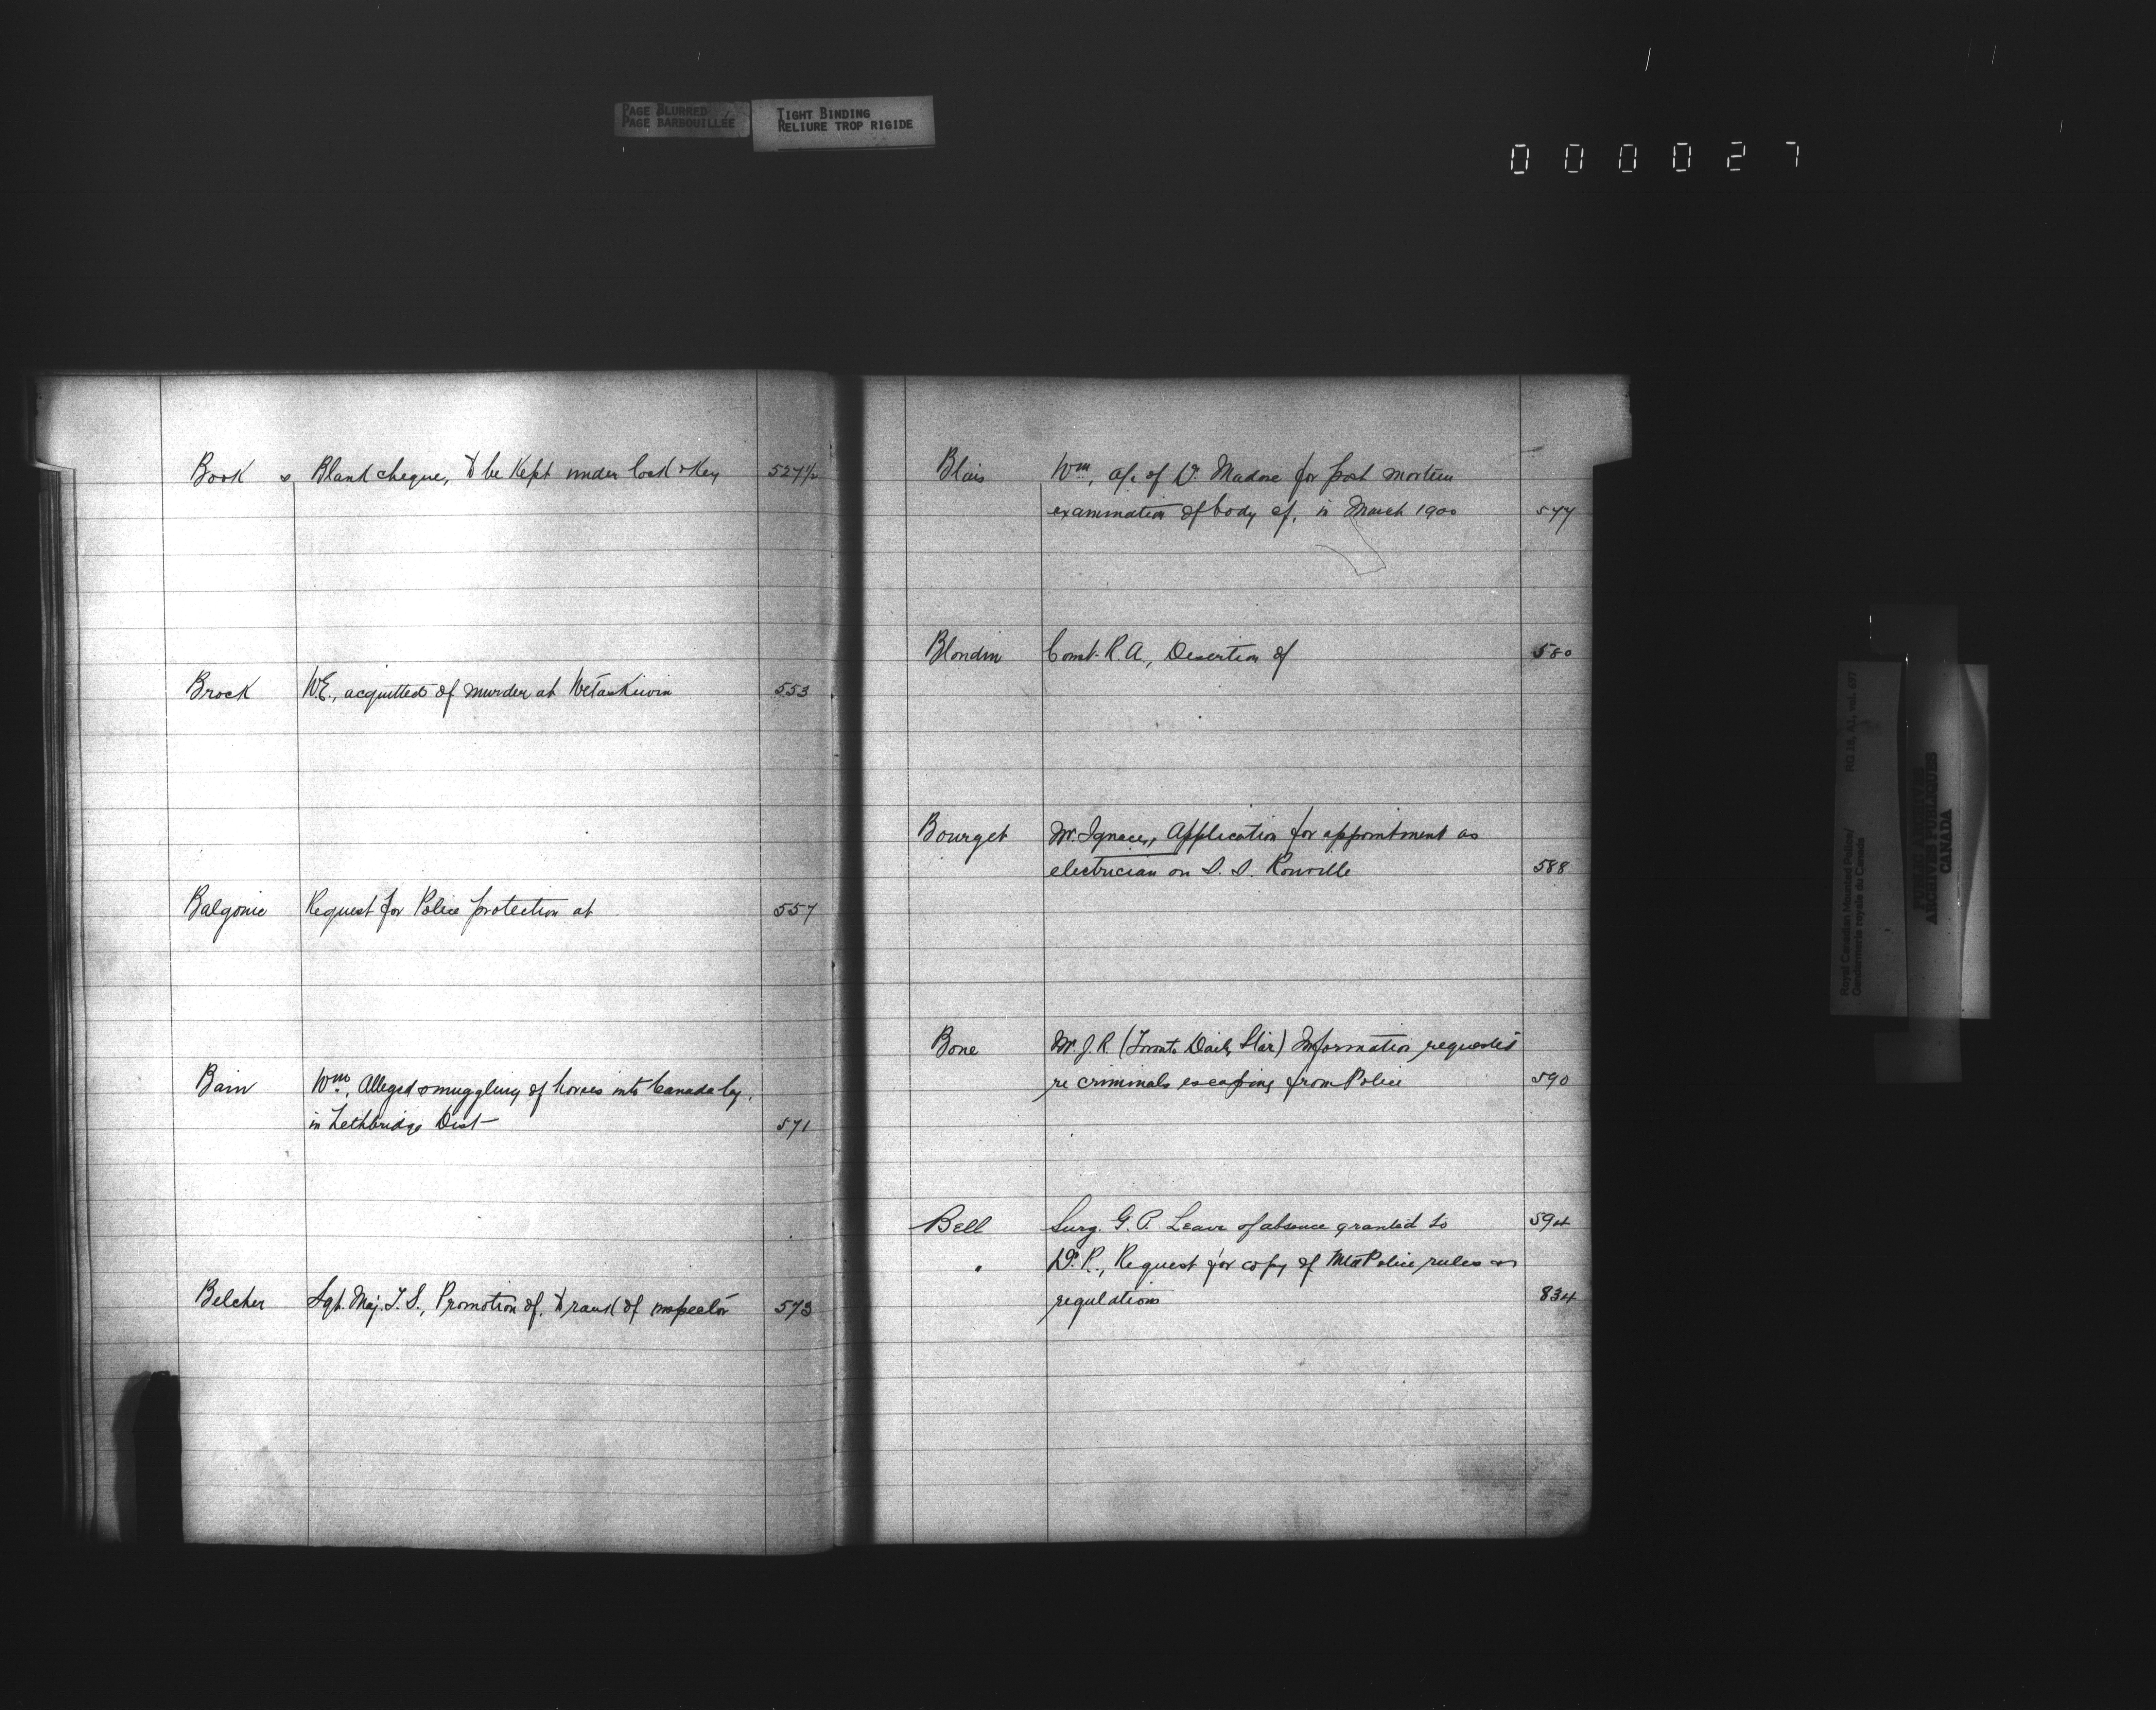 PAGE BLURRED
PAGE BARBOUILLÉE
TIGHT BINDING
RELIURE TROP RIGIDE
000027
Book s, Blank cheque, to be Kept under lock & Key 527½
Brock W.E., acquitted of murder at Wetaskiwin 553
Balgonie Request for Police protection at 557
Bain Wm, Alleged smuggling of horses into Canada by,
in Lethbridge Dist 571
Belcher Sgt. Maj. T.S., Promotion of, to rank of inspector 573
Blais Wm, a/c of Dr. Madore for post mortem
examination of body of, in March 1900 577
Blondin Const. R.A., Desertion of 580
Bourget Mr. Ignace, Application for appointment as
electrician on S.S. 588
Bone Mr. J.R. (Toronto Daily Star) Information requested
re criminals escaping from Police 590
Bell Surg. G.P. Leave of absence granted to 594
" Dr. R., Request for copy of Mtd Police rules and
regulations 834
Royal Canadian Mounted Police/
Gendarmerie royale du Canada
RG 18, A1, vol. 677
PUBLIC ARCHIVES
ARCHIVES PUBLIQUES
CANADA